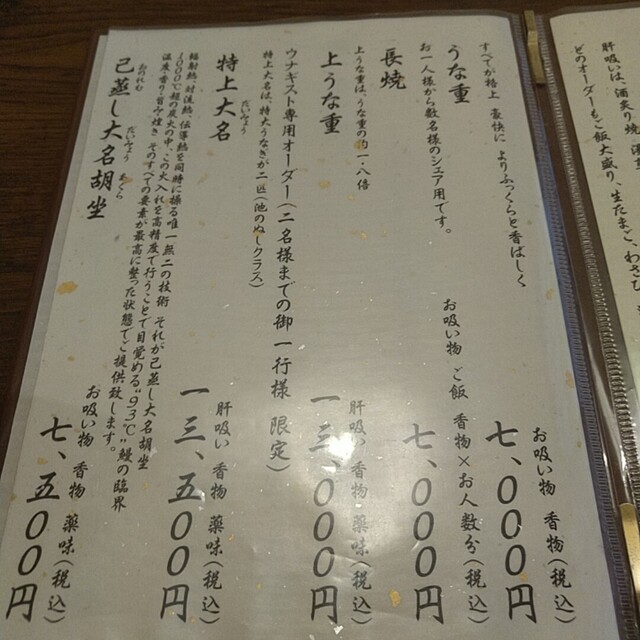 すべてが格上 豪快に よりふっくらと香ばしく
うな重
お吸い物 香物(税込)
七、000円
お一人様から数名様のシェア用です。
長焼
お吸い物 ご飯 香物×お人数分(税込)
七、000円
上うな重は、うな重の約一・八倍
上うな重
肝吸い 香物 薬味(税込)
一三、000円
ウナギスト専用オーダー(二名様までの御一行様 限定)
特上大名は、特大うなぎが二匹(池のぬしクラス)
特上大名
だいみょう
肝吸い 香物 薬味(税込)
一三、五00円
輻射熱、対流熱、伝導熱を同時に操る唯一無二の技術 それが己蒸し大名胡坐
1000℃超の炭火の中、この火入れを高精度で行うことで目覚める"93℃"鰻の臨界
温度・香り・旨み・焼き そのすべての要素が最高に整った状態でご提供致します。
己蒸し大名胡坐
おのれむ だいみょう あぐら
お吸い物 香物 薬味(税込)
七、五00円
肝吸いは、酒炙り焼
どのオーダーもご飯大盛り、生たまご、わさび